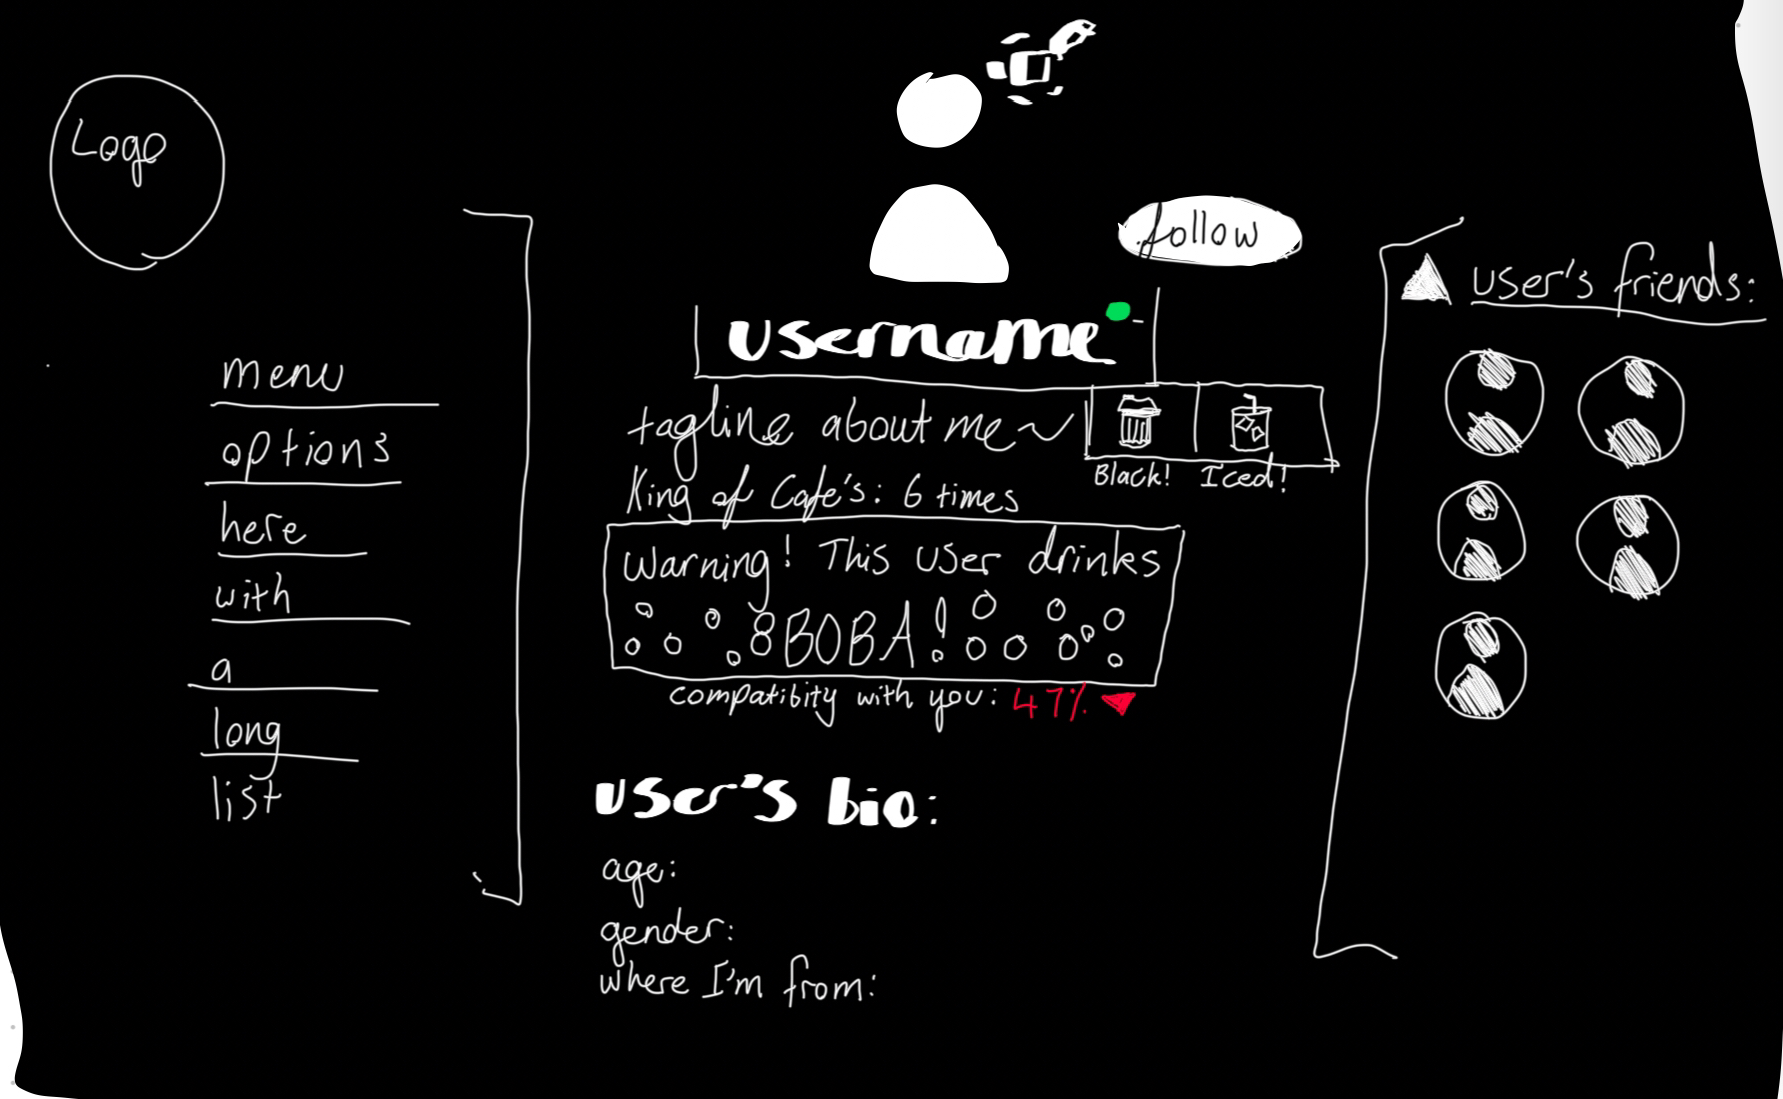 Logo
menu
options
here
with
a
long
list
follow
username
tagline about me~
Black! Iced!
King of Cafe's: 6 times
Warning! This user drinks
BOBA!
compatibity with you: 47%
user's bio:
age:
gender:
where I'm from:
user's friends: